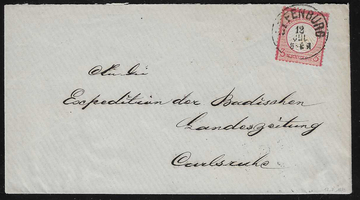 OFFENBURG
12
JUL
An die
Expedition der Badischen
Landeszeitung
Carlsruhe.